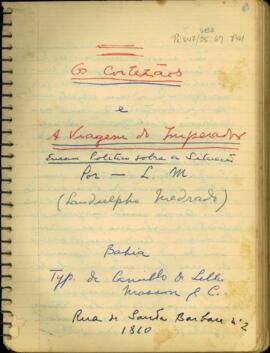 Os Cortezãos
e
A Viagem do Imperador
Ensaio Politico sobre a Situação
Por — L. M
(Landulpho Medrado)
Bahia
Typ. de Camillo de Lellis
Masson & C.
Rua de Santa Barbara nº 2
1860